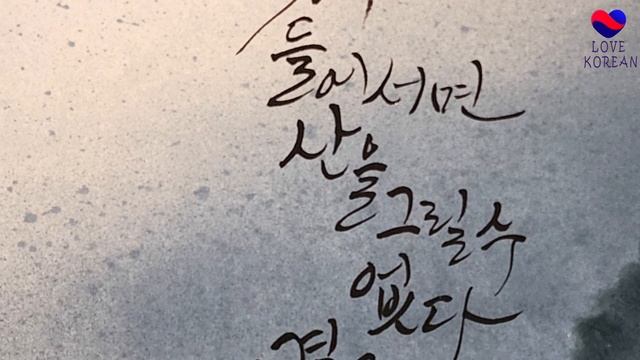 LOVE
KOREAN
들어서면
산을
그릴수
없다